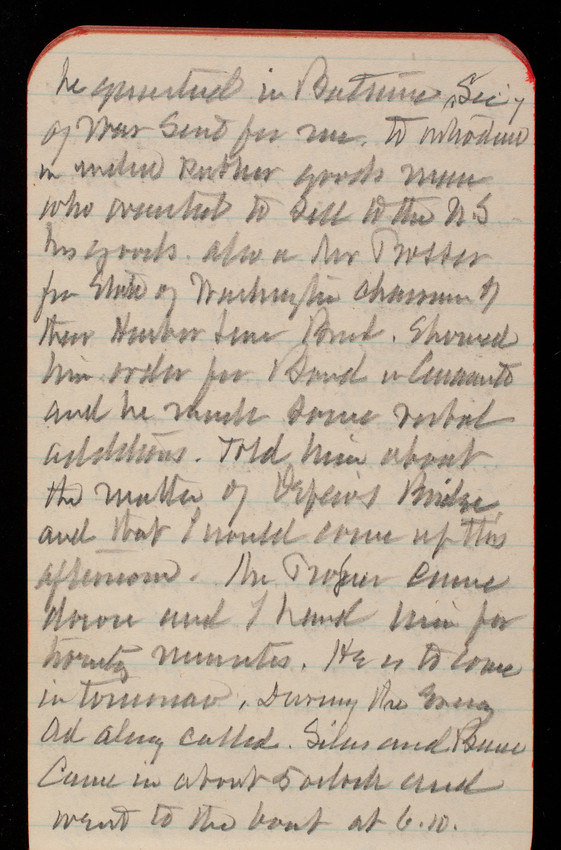 he in Baltimore, Secy
of War Sent for me. to introduce
in Rubber goods man
who wanted to sell to the U.S
his goods. also a Mr Prosser
fr State of Washington chairman of
their Harbor Line Board. Showed
him order for Board
and he made some verbal
additions. Told him about
the matter of Bridge,
and that I would come up this
afternoon. Mr Prosser came
down and I heard him for
twenty minutes. He is to come
in tomorrow. During the
called. Silas and
Came in about 5 oclock and
went to the boat at 6.10.